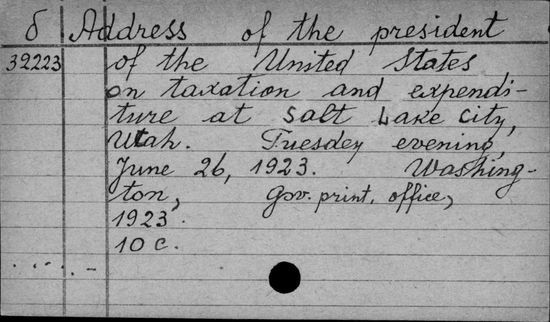 δ Address of the president
32223 of the United States
on taxation and expendi-
ture at Salt Lake City,
Utah. Tuesdey evening,
June 26, 1923. Washing-
ton, Gov. print. office,
1923.
10 c.